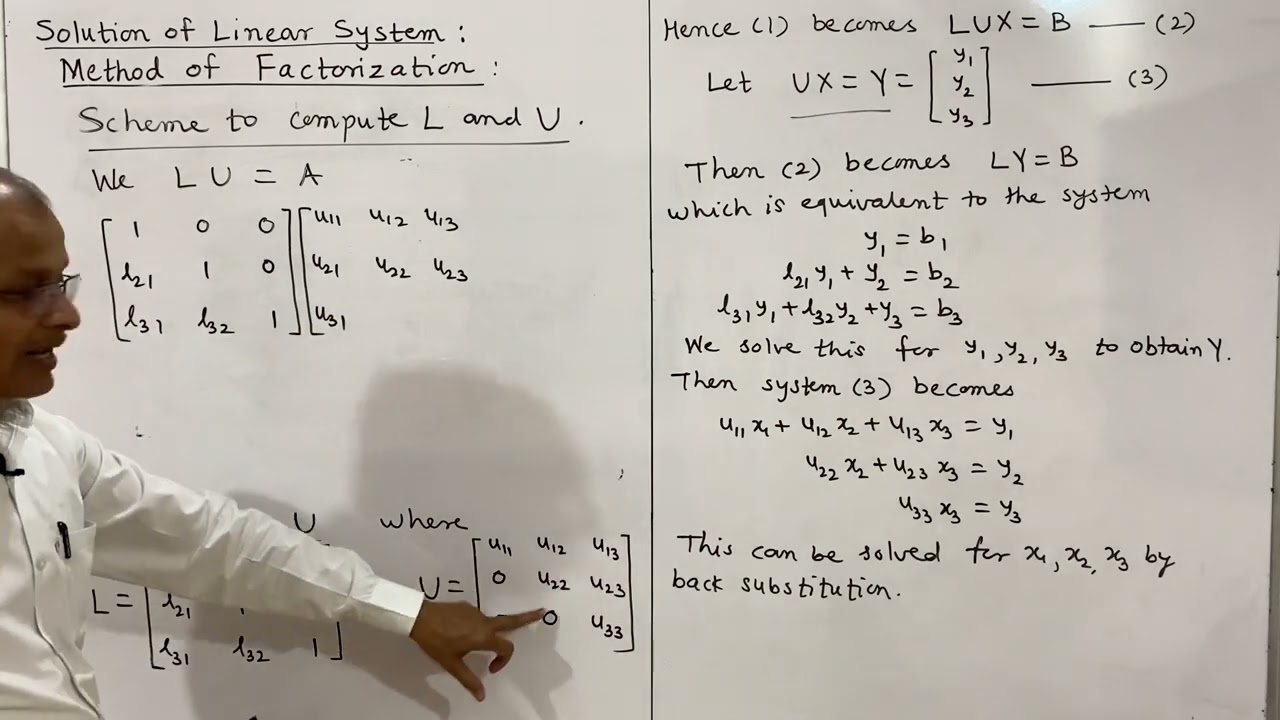 Solution of Linear System :
Method of Factorization :
Scheme to compute L and U .
We L U = A
[ 1 0 0 ] [ u11 u12 u13
[ l21 1 0 ] [ u21 u22 u23
[ l31 l32 1 ] [ u31
U where
L = [ l21 1
l31 l32 1 ]
U = [ u11 u12 u13
0 u22 u23
0 u33 ]
Hence (1) becomes LUX = B —— (2)
Let UX = Y = [ y1
y2
y3 ] —— (3)
Then (2) becomes LY = B
which is equivalent to the system
y1 = b1
l21 y1 + y2 = b2
l31 y1 + l32 y2 + y3 = b3
We solve this for y1, y2, y3 to obtain Y.
Then system (3) becomes
u11 x1 + u12 x2 + u13 x3 = y1
u22 x2 + u23 x3 = y2
u33 x3 = y3
This can be solved for x1, x2, x3 by
back substitution.